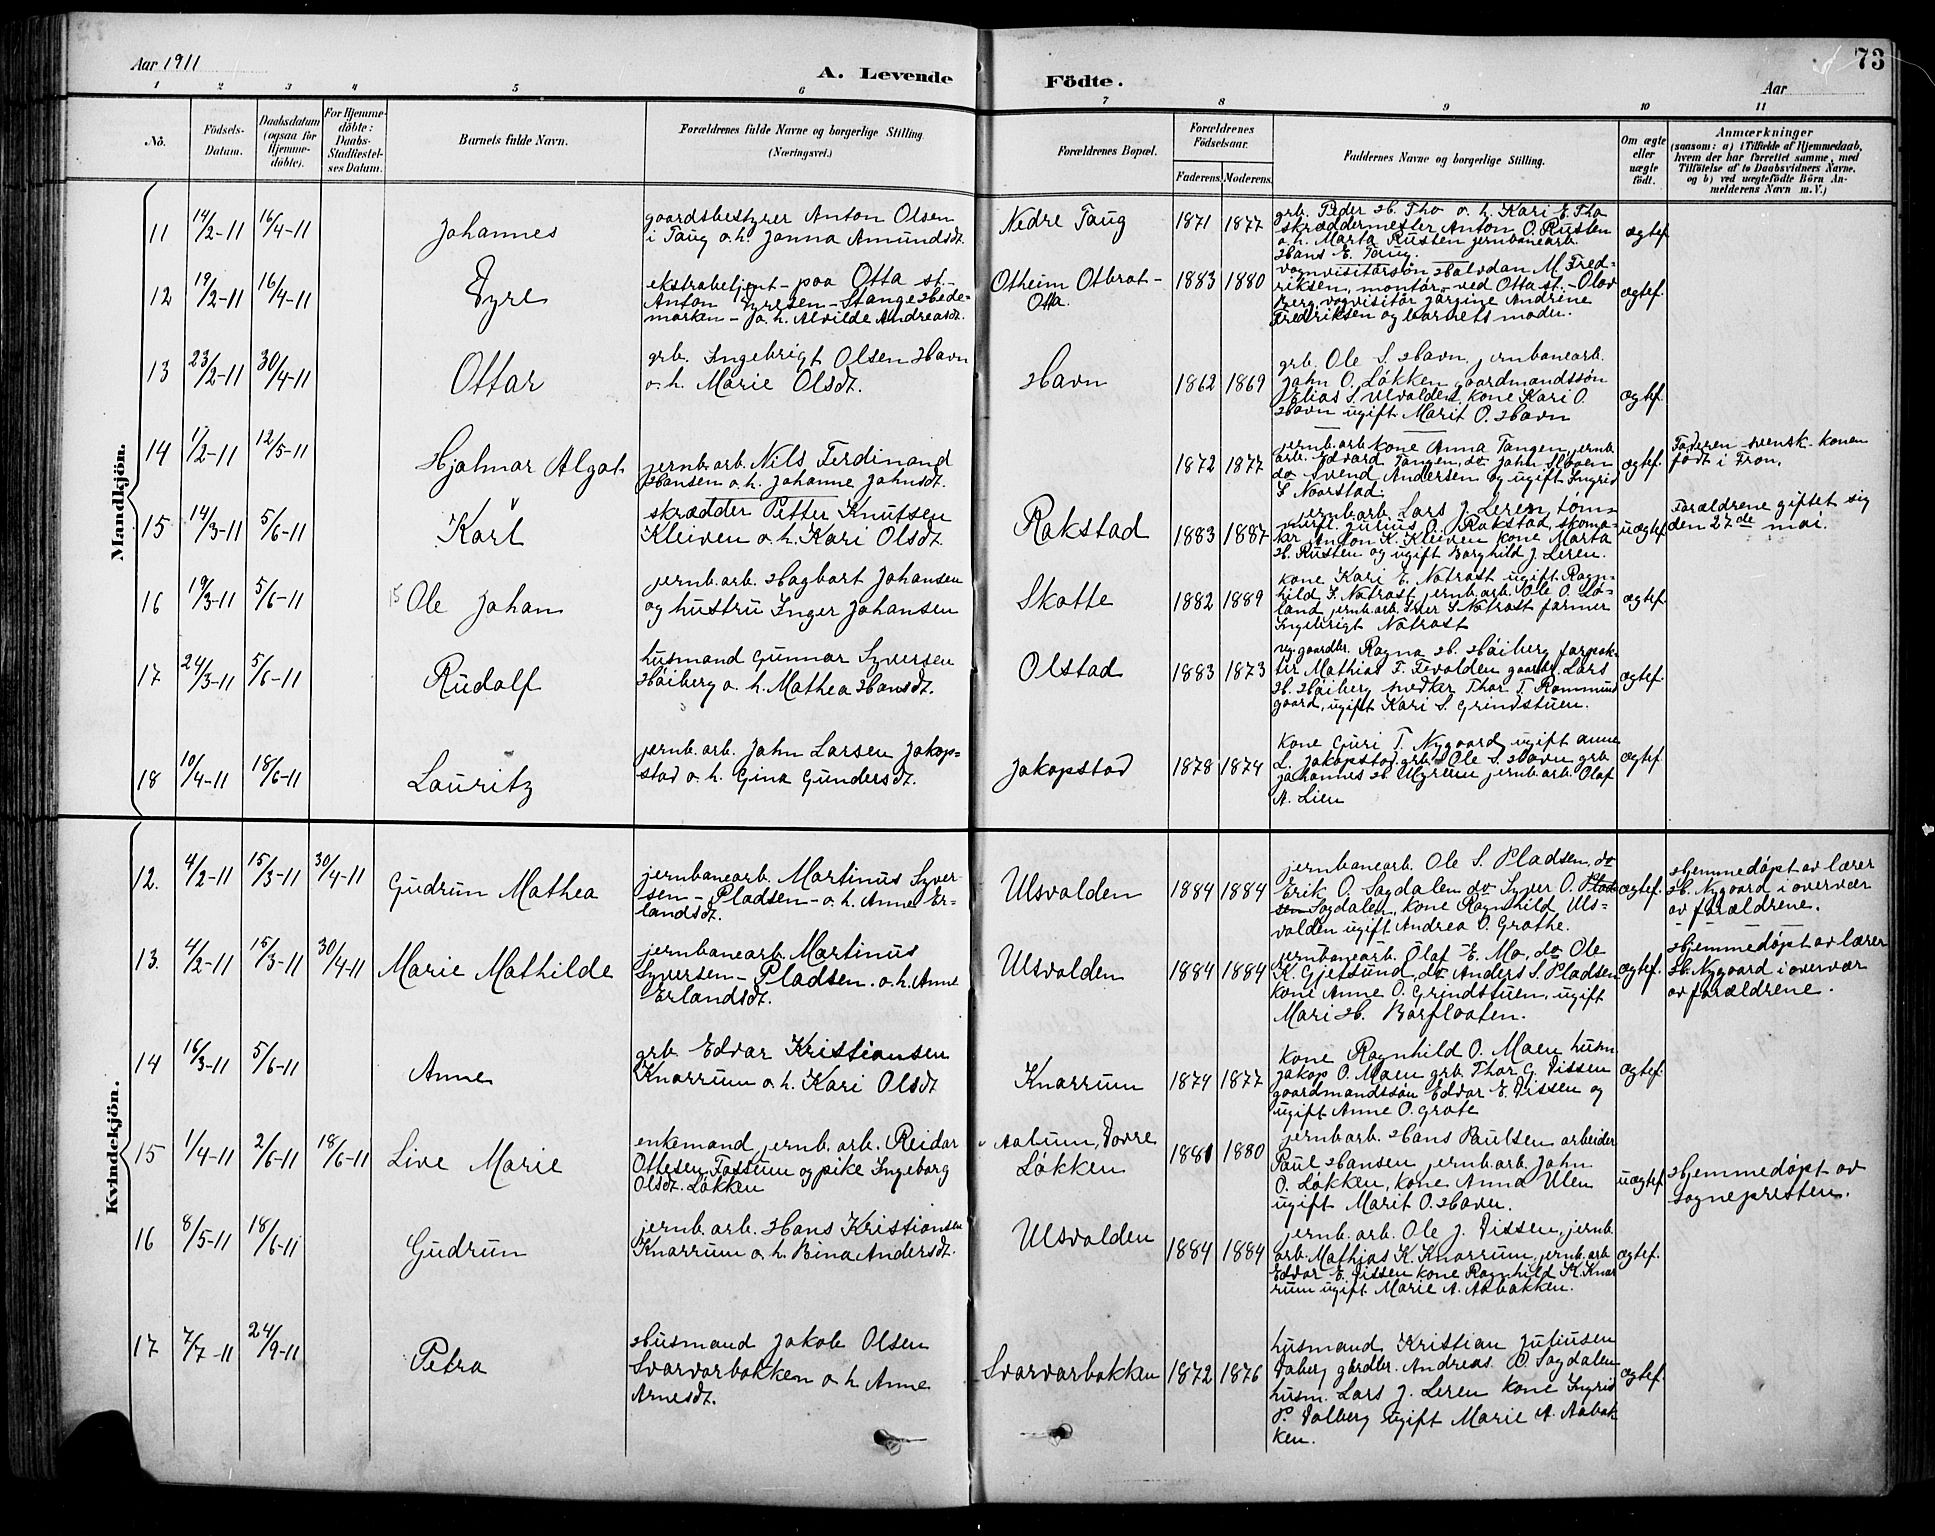 Aar 1911
A. Levende Födte.
Aar
73
1 2 3 4 5 6 7 8 9 10 11
No.
Födsels-Datum.
Daabsdatum (ogsaa for Hjemme-döbte).
For Hjemme-döbte: Daabs-Stadfæstel-ses Datum.
Barnets fulde Navn.
Forældrenes fulde Navne og borgerlige Stilling (Næringsvei.)
Forældrenes Bopæl.
Forældrenes Födselsaar.
Faderens. Moderens.
Faddernes Navne og borgerlige Stilling.
Om ægte eller uægte födt.
Anmærkninger
(saasom: a) i Tilfælde af Hjemmedaab,
hvem der har forrettet samme, med
Tilföielse af to Daabsvidners Navne.
og b) ved uægtefödte Börn An-
melderens Navn m. V.)
Mandkjön.
11 14/2-11 16/4-11 Johannes
gaardsbestyrer Anton Olsen
i Taug o. h. Janna Amundsdt.
Nedre Taug 1871 1877
grb. Peder H. Tho o. h. Kari E. Tho
skræddermester Anton O. Rusten
o. h. Marta Rusten jernbanearb.
Hans E. Taug.
ægtef
12 19/2-11 16/4-11 Syre
ekstrabetjent - paa Otta st. -
Anton Syresen - Stange Hede-
marken - o. h. Alvilde Andreasdt.
Otheim Otbrat-
Otta.
1883 1880
vognvisitörsøn Halvdan M. Fred-
riksen, montør - ved Otta st. - Olav
Berg, vogvisitör Jørgine Andrine
Fredriksen og barnets moder.
ægtef
13 23/2-11 30/4-11 Ottar
grb. Ingebrigt Olsen Havn
o. h. Marie Olsdt.
Havn 1862 1869
grb. Ole S. Havn, jernbanearb.
John O. Løkken gaardmandssön
Elias S. Ulvalden, kone Kari O.
Havn ugift Marit O. Havn
ægtef.
14 1/2-11 12/5-11 Hjalmar Algot
jernb. arb. Nils Ferdinand
Hansen o. h. Johanne Johnsdt.
1872 1877
jernb. arb. kone Anna Tangen, jernb.
arb. Edvard Tangen, do John Sloen
do Svend Andersen og ugift Ingrid
S Naarstad.
ægtef.
Faderen svensk - konen
født i Fron.
15 14/3-11 5/6-11 Karl
skrædder Petter Knutsen
Kleiven o. h. Kari Olsdt.
Rakstad 1883 1887
jernb. arb. Lars J. Leren, tøm-
murft. Julius O. Rakstad, skoma-
ker Anton K. Kleiven kone Marta
H. Rusten og ugift Borghild J. Leren.
uægtef
Forældrene giftet sig
den 27de mai.
16 19/3-11 5/6-11 15 Ole Johan
jernb. arb. Hagbart Johansen
og hustru Inger Johansen
Skotte 1882 1889
kone Kari E. Notrost ugift Ragn-
hild S. Notrost jernb. arb. Ole O. Lo-
land jernb. arb. Iver S Notrost farmer
Ingebrigt Notrost
ægtef.
17 24/3-11 5/6-11 Rudolf
husmand Gunnar Syversen
Høiberg o. h. Mathea Hansdt.
Olstad 1883 1873
ug. gaardbr. Ragna H. Høiberg forpak-
ter Mathias T. Tevalden gaardbr. Lars
H. Høiberg snedker Thor T. Rommund
gaard, ugift Kari S. Grindstuen.
ægtef.
18 10/4-11 18/6-11 Lauritz
jernb. arb. John Larsen Jakop-
stad o. h. Gina Gundersdt.
Jakopstad 1878 1874
kone Guri T. Nygaard, ugift Anne
L. Jakopstad, grb. Ole S. Havn grb
Johannes H. Ulgreim jernb. arb. Olaf
A. Lien
ægtef.
Kvindekjön.
12. 4/2-11 15/3-11 30/4-11 Gudrun Mathea
jernbanearb. Martinus Syver-
sen - Pladsen - o. h. Anne Er-
landsdt.
Ulsvolden 1884 1884
jernbanearb. Ole S. Pladsen, do
Erik O. Sagdalen do Syver O. Plad
sen Sagdalen, kone Ragnhild Uls-
volden ugift Andrea O. Grothe.
ægtef.
Hjemmedøpt av lærer
H. Nygaard i overvær
av forældrene.
13. 4/2-11 15/3-11 30/4-11 Marie Mathilde
jernbanearb. Martinus
Syversen - Pladsen. o. h. Anne
Erlandsdt.
Ulsvolden 1884 1884
jernbanearb. Olaf E. Mo, do Ole
K. Gjetsund, do Anders S. Pladsen
kone Anne O. Grindstuen, ugift
Mari H. Borfloaten.
ægtef.
Hjemmedøpt av lærer
H. Nygaard i overvær
av forældrene.
14 16/3-11 5/6-11 Anne
grb. Edvar Kristiansen
Knarrum o. h. Kari Olsdt
Knarrum 1874 1877
kone Ragnhild O. Moen husm
Jakop O. Moen grb Thor G. Vissen
gaardmandssøn Edvar E. Vissen og
ugift Anne O. Grote
ægtef.
15 1/4-11 2/6-11 18/6-11 Live Marie
enkemand jernb. arb. Reidar
Ottesen Fossum og pike Ingeborg
Olsdt. Løkken
Aabum, Dovre
Løkken
1881 1880
jernb. arb. Hans Paulsen arbeider
Paul Hansen jernb. arb. John
O. Løkken, kone Anna Ulen
ugift Marit O. Havn.
uægtef
Hjemmedøpt av
sognepresten.
16 8/5-11 18/6-11 Gudrun
jernb. arb. Hans Kristiansen
Knarrum o. h. Bina Andersdt.
Ulsvolden 1884 1884
jernb. arb. Ole J. Vissen, jernb.
arb. Mathias K. Knarrum, jernb. arb
Edvar E. Vissen kone Ragnhild K. Knar
rum ugift Marie A. Aabakken.
ægtef.
17 7/7-11 24/9-11 Petra
Husmand Jakob Olsen
Svarvarbakken o. h. Anne
Arnesdt.
Svarvarbakken 1872 1876
husmand Kristian Juliusen
Daberg gårdbr. Andreas O. Sagdalen
husm. Lars J. Leren kone Ingrid
P. Dalberg ugift Marie A. Aabak
ken.
ægtef.